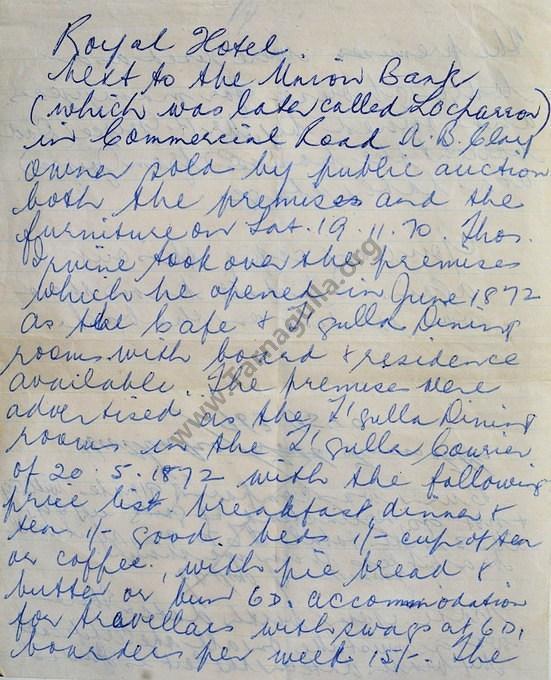 Royal Hotel.
Next to the Union Bank
(which was later called Locparron)
in Commercial Road A. B. Clay
owner sold by public auction
both the premises and the
furniture on Sat. 19.11.70. Thos.
Irvine took over the premises
which he opened in June 1872
as the Cafe & T'gulla Dining
rooms with board & residence
available. The premises were
advertised as the T'gulla Dining
rooms in the T'gulla Courier
of 20.5.1872 with the following
price list. breakfast dinner &
tea 1/- good. beds 1/- cup of tea
or coffee, with pie bread &
butter or bun 6D. accommodation
for travellars with swags at 6D,
boarders per week 15/-. The
www.Tarnagulla.org